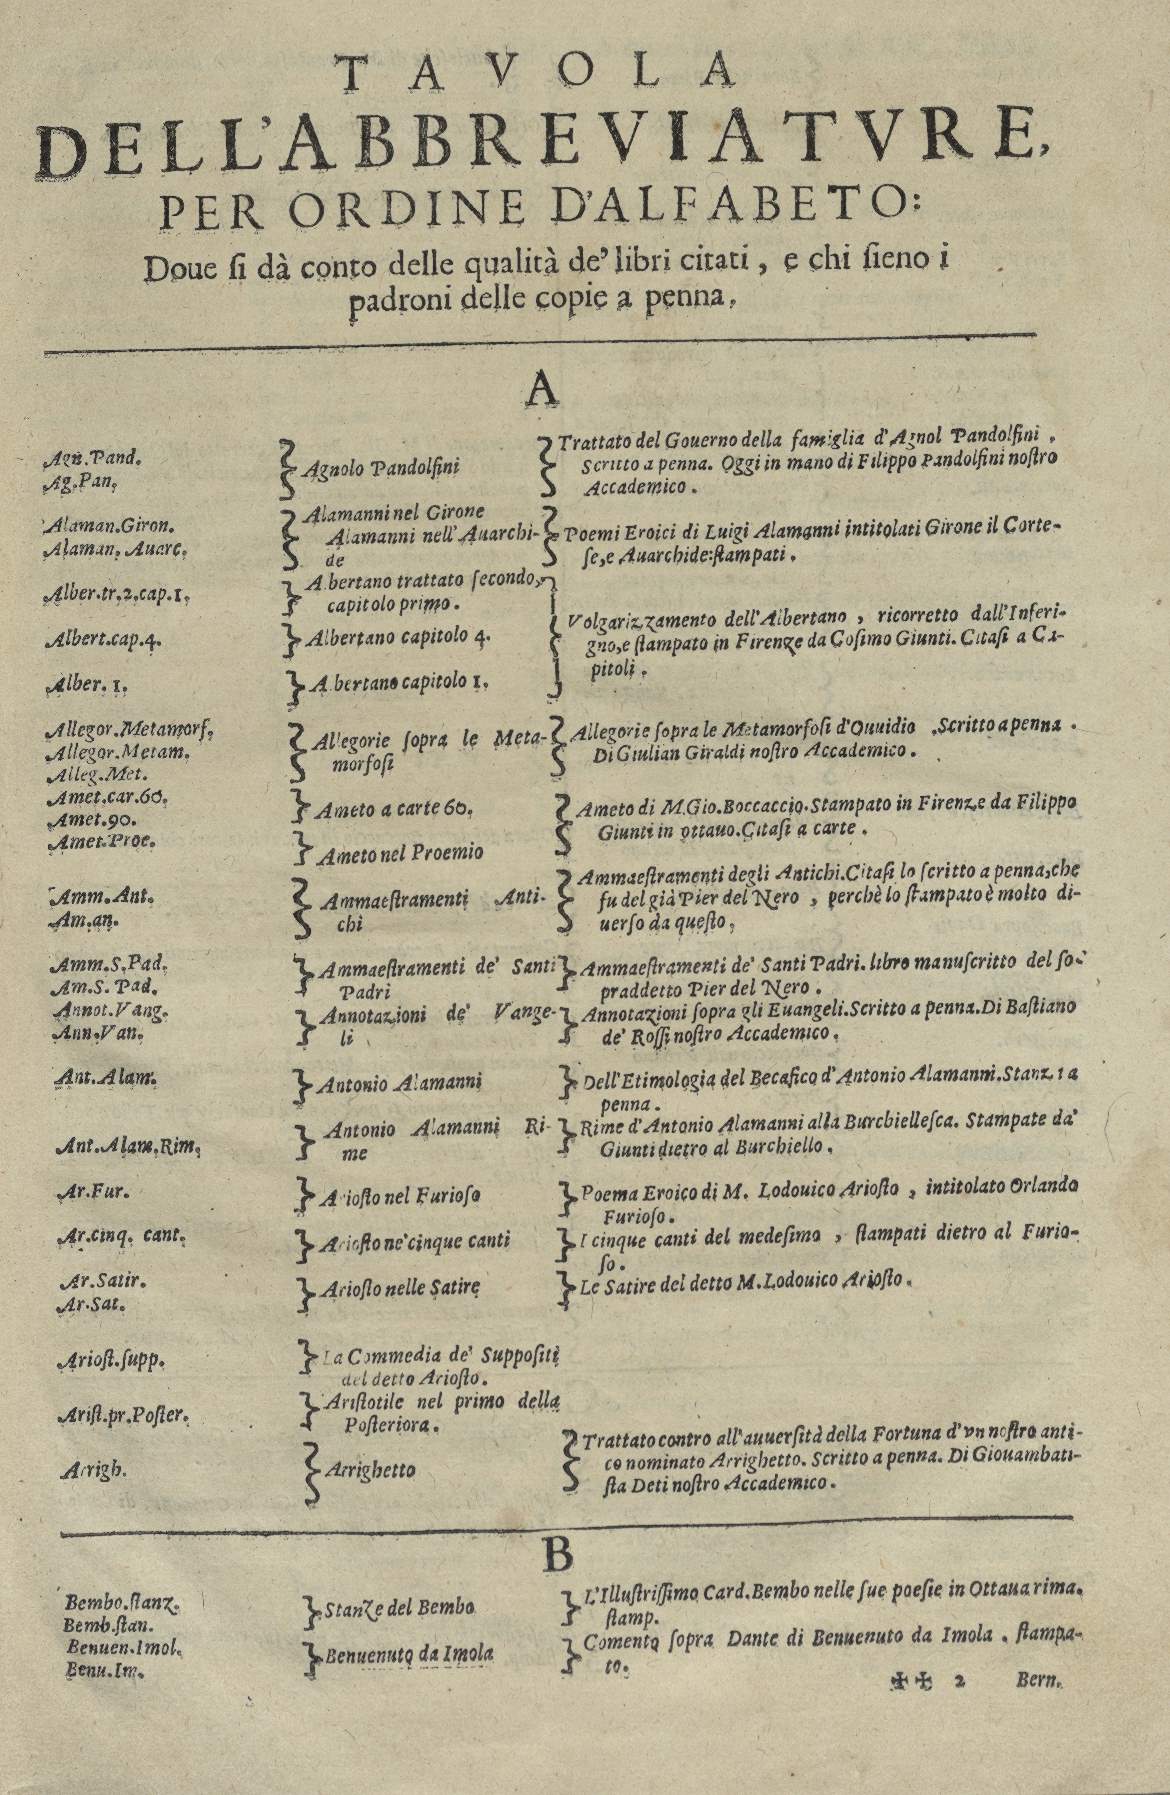 TAVOLA
DELL'ABBREVIATVRE,
PER ORDINE D'ALFABETO:
Doue ſi dà conto delle qualità de' libri citati, e chi ſieno i
padroni delle copie a penna.
A
Agn.Pand.
Ag.Pan.
Agnolo Pandolfini
Trattato del Gouerno della famiglia d'Agnol Pandolfini.
Scritto a penna. Oggi in mano di Filippo Pandolfini noſtro
Accademico.
Alaman.Giron.
Alaman. Auarc.
Alamanni nel Girone
Alamanni nell'Auarchi-
de
Poemi Eroici di Luigi Alamanni intitolati Girone il Corte-
ſe, e Auarchide: ſtampati.
Alber.tr.2.cap.1.
Albertano trattato ſecondo,
capitolo primo.
Albert.cap.4.
Albertano capitolo 4.
Alber. 1.
Albertano capitolo 1.
Volgarizzamento dell'Albertano, ricorretto dall'Inferi-
gno, e ſtampato in Firenze da Coſimo Giunti. Citaſi a Ca-
pitoli.
Allegor.Metamorf.
Allegor.Metam.
Alleg.Met.
Allegorie ſopra le Meta-
morfoſi
Allegorie ſopra le Metamorfoſi d'Ouuidio. Scritto a penna.
Di Giulian Giraldi noſtro Accademico.
Amet.car.60.
Amet.90.
Amet.Proe.
Ameto a carte 60.
Ameto nel Proemio
Ameto di M.Gio.Boccaccio.Stampato in Firenze da Filippo
Giunti in ottauo.Citaſi a carte.
Amm.Ant.
Am.an.
Ammaeſtramenti Anti-
chi
Ammaeſtramenti degli Antichi.Citaſi lo ſcritto a penna,che
fu del già Pier del Nero, perchè lo ſtampato è molto di-
uerſo da queſto.
Amm.S.Pad.
Am.S.Pad.
Ammaeſtramenti de' Santi
Padri
Ammaeſtramenti de' Santi Padri. libro manuſcritto del ſo-
praddetto Pier del Nero.
Annot.Vang.
Ann.Van.
Annotazioni de' Vange-
li
Annotazioni ſopra gli Euangeli.Scritto a penna.Di Baſtiano
de' Roſſi noſtro Accademico.
Ant.Alam.
Antonio Alamanni
Dell'Etimologia del Becafico d'Antonio Alamanni.Stanz.1a
penna.
Ant.Alam.Rim.
Antonio Alamanni Ri-
me
Rime d'Antonio Alamanni alla Burchielleſca. Stampate da'
Giunti dietro al Burchiello.
Ar.Fur.
Arioſto nel Furioſo
Poema Eroico di M. Lodouico Arioſto, intitolato Orlando
Furioſo.
Ar.cinq. cant.
Arioſto ne'cinque canti
I cinque canti del medeſimo, ſtampati dietro al Furio-
ſo.
Ar.Satir.
Ar.Sat.
Arioſto nelle Satire
Le Satire del detto M.Lodouico Arioſto.
Arioſt.ſupp.
La Commedia de' Suppoſiti
del detto Arioſto.
Ariſt.pr.Poſter.
Ariſtotile nel primo della
Poſteriora.
Arrigh.
Arrighetto
Trattato contro all'auuerſità della Fortuna d'vn noſtro anti-
co nominato Arrighetto. Scritto a penna. Di Giouambati-
ſta Deti noſtro Accademico.
B
Bembo.ſtanz.
Bemb.ſtan.
Stanze del Bembo
L'Illuſtriſſimo Card.Bembo nelle ſue poeſie in Ottaua rima.
ſtamp.
Benuen.Imol.
Benu.Im.
Benuenuto da Imola
Comento ſopra Dante di Benuenuto da Imola. ſtampa-
to.
✠✠ 2 Bern.